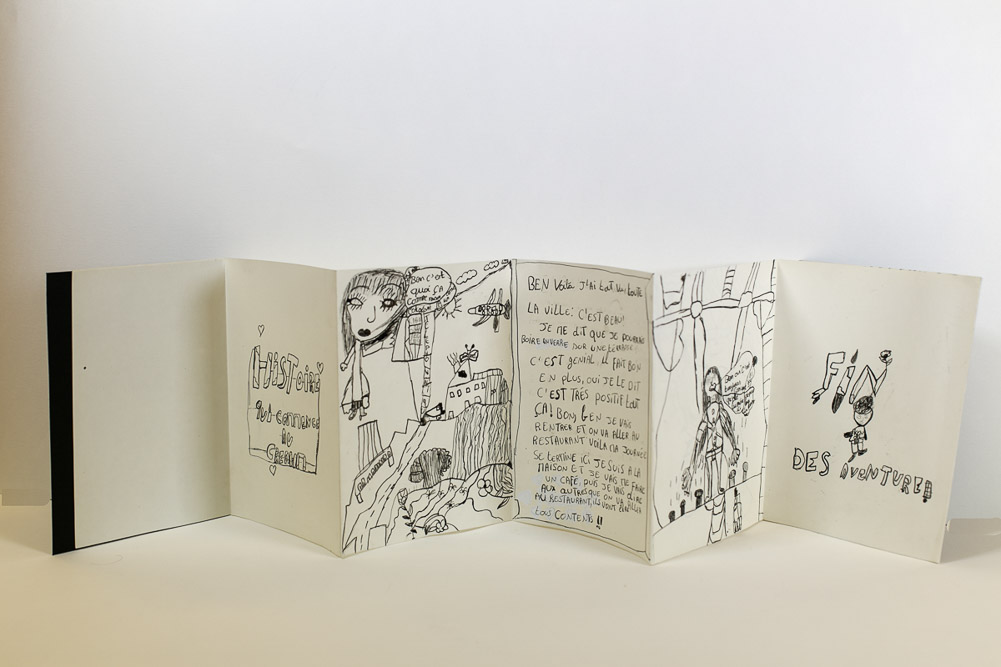 HISTOIRE
QUI COMMENCE
AU
Bon c'est
quoi ÇA
COMME
PANORAMA
BEN VOILÀ J'AI tout VU toute
LA VILLE: C'EST BEAU!
JE ME DIT QUE JE POURRAIS
BOIRE UN VERRE SUR UNE TERRASSE.
C'EST GENIAL, IL FAIT BON
EN PLUS, OUI JE LE DIT
C'EST TRÈS POSITIF tout
ÇA! BON, BEN JE VAIS
RENTRER ET ON VA ALLER AU
RESTAURANT VOILÀ MA JOURNÉE
SE TERMINE ICI JE SUIS A LA
MAISON ET JE VAIS ME FAIRE
UN CAFÉ, PUIS JE VAIS DIRE
AUX AUTRES QUE ON VA ALLER
AU RESTAURANT, ILS VONT
tous CONTENTS !!
FIN
DES AVENTURES